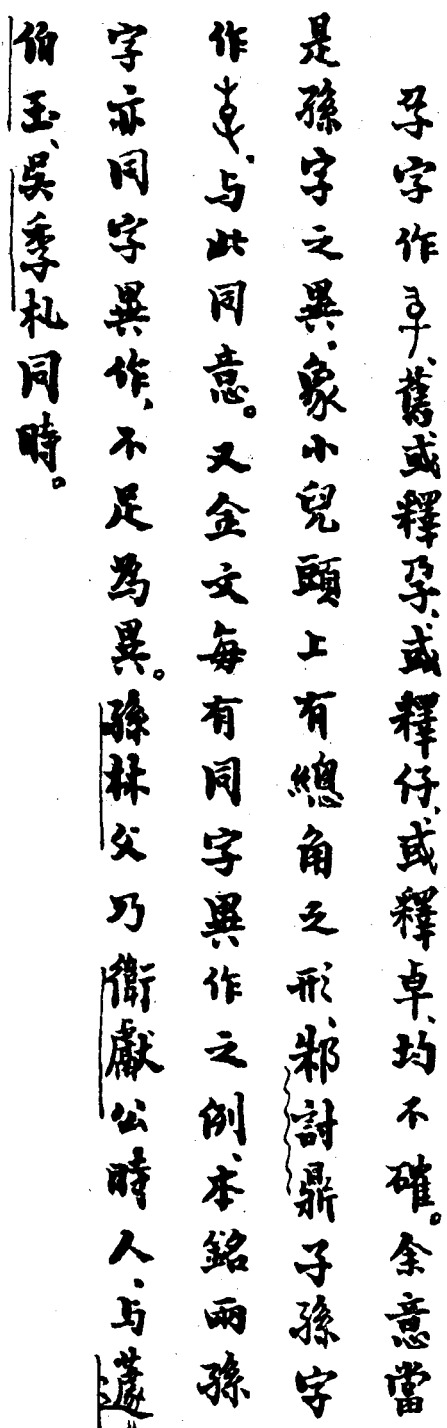 孕字作、舊或釋孕、或釋仔、或釋卓、均不確。余意當
是孫字之異、象小兒頭上有總角之形、邾討鼎子孫字
作、与此同意。又金文每有同字異作之例、本銘兩孫
字亦同字異作、不足為異。孫林父乃衛獻公時人、与蘧
伯玉、吳季札同時。